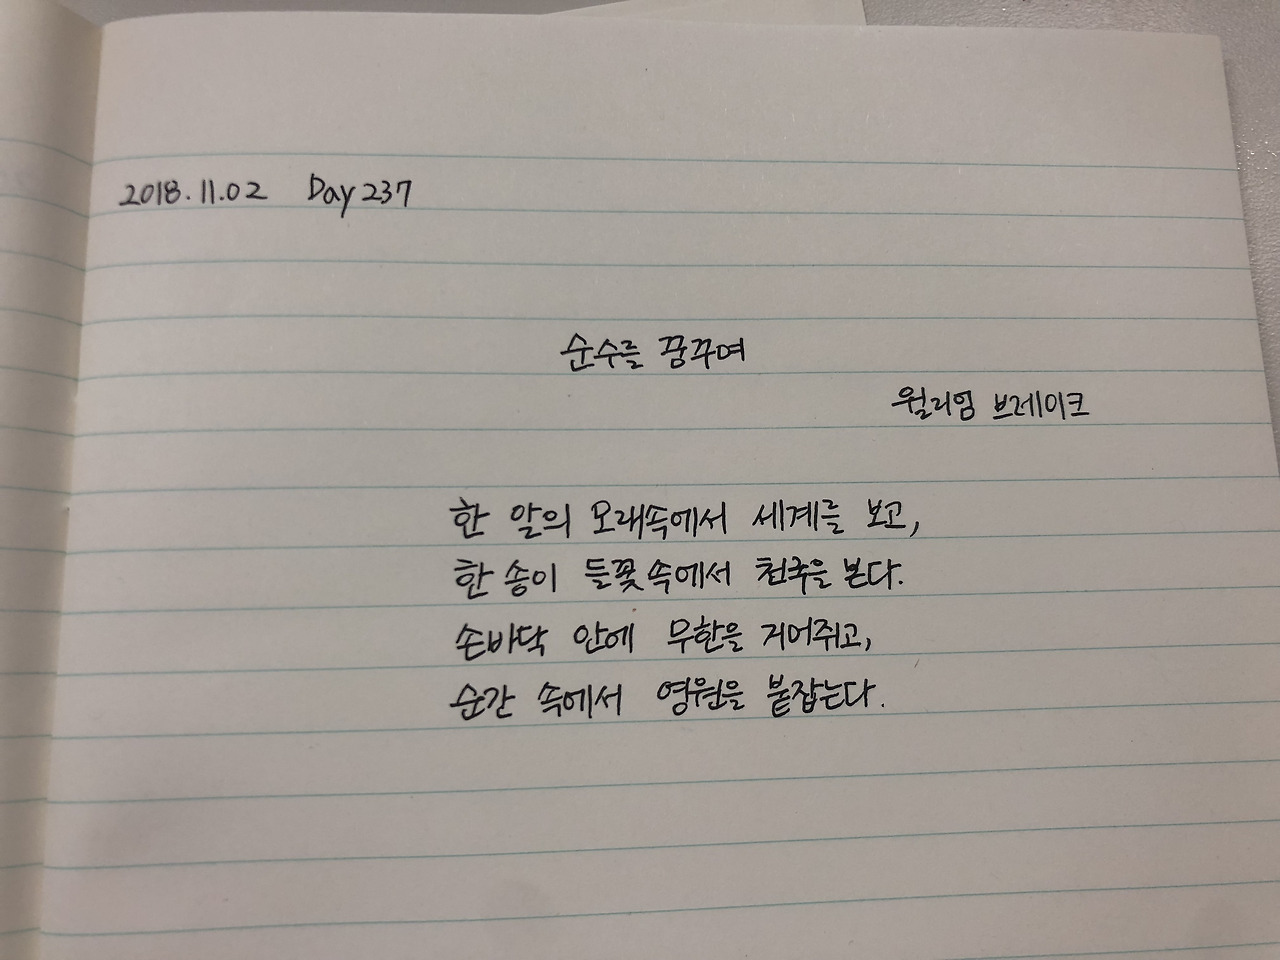 2018.11.02 Day 237
순수를 꿈꾸며
윌리엄 브레이크
한 알의 모래속에서 세계를 보고,
한 송이 들꽃속에서 천국을 본다.
손바닥 안에 무한을 거머쥐고,
순간 속에서 영원을 붙잡는다.